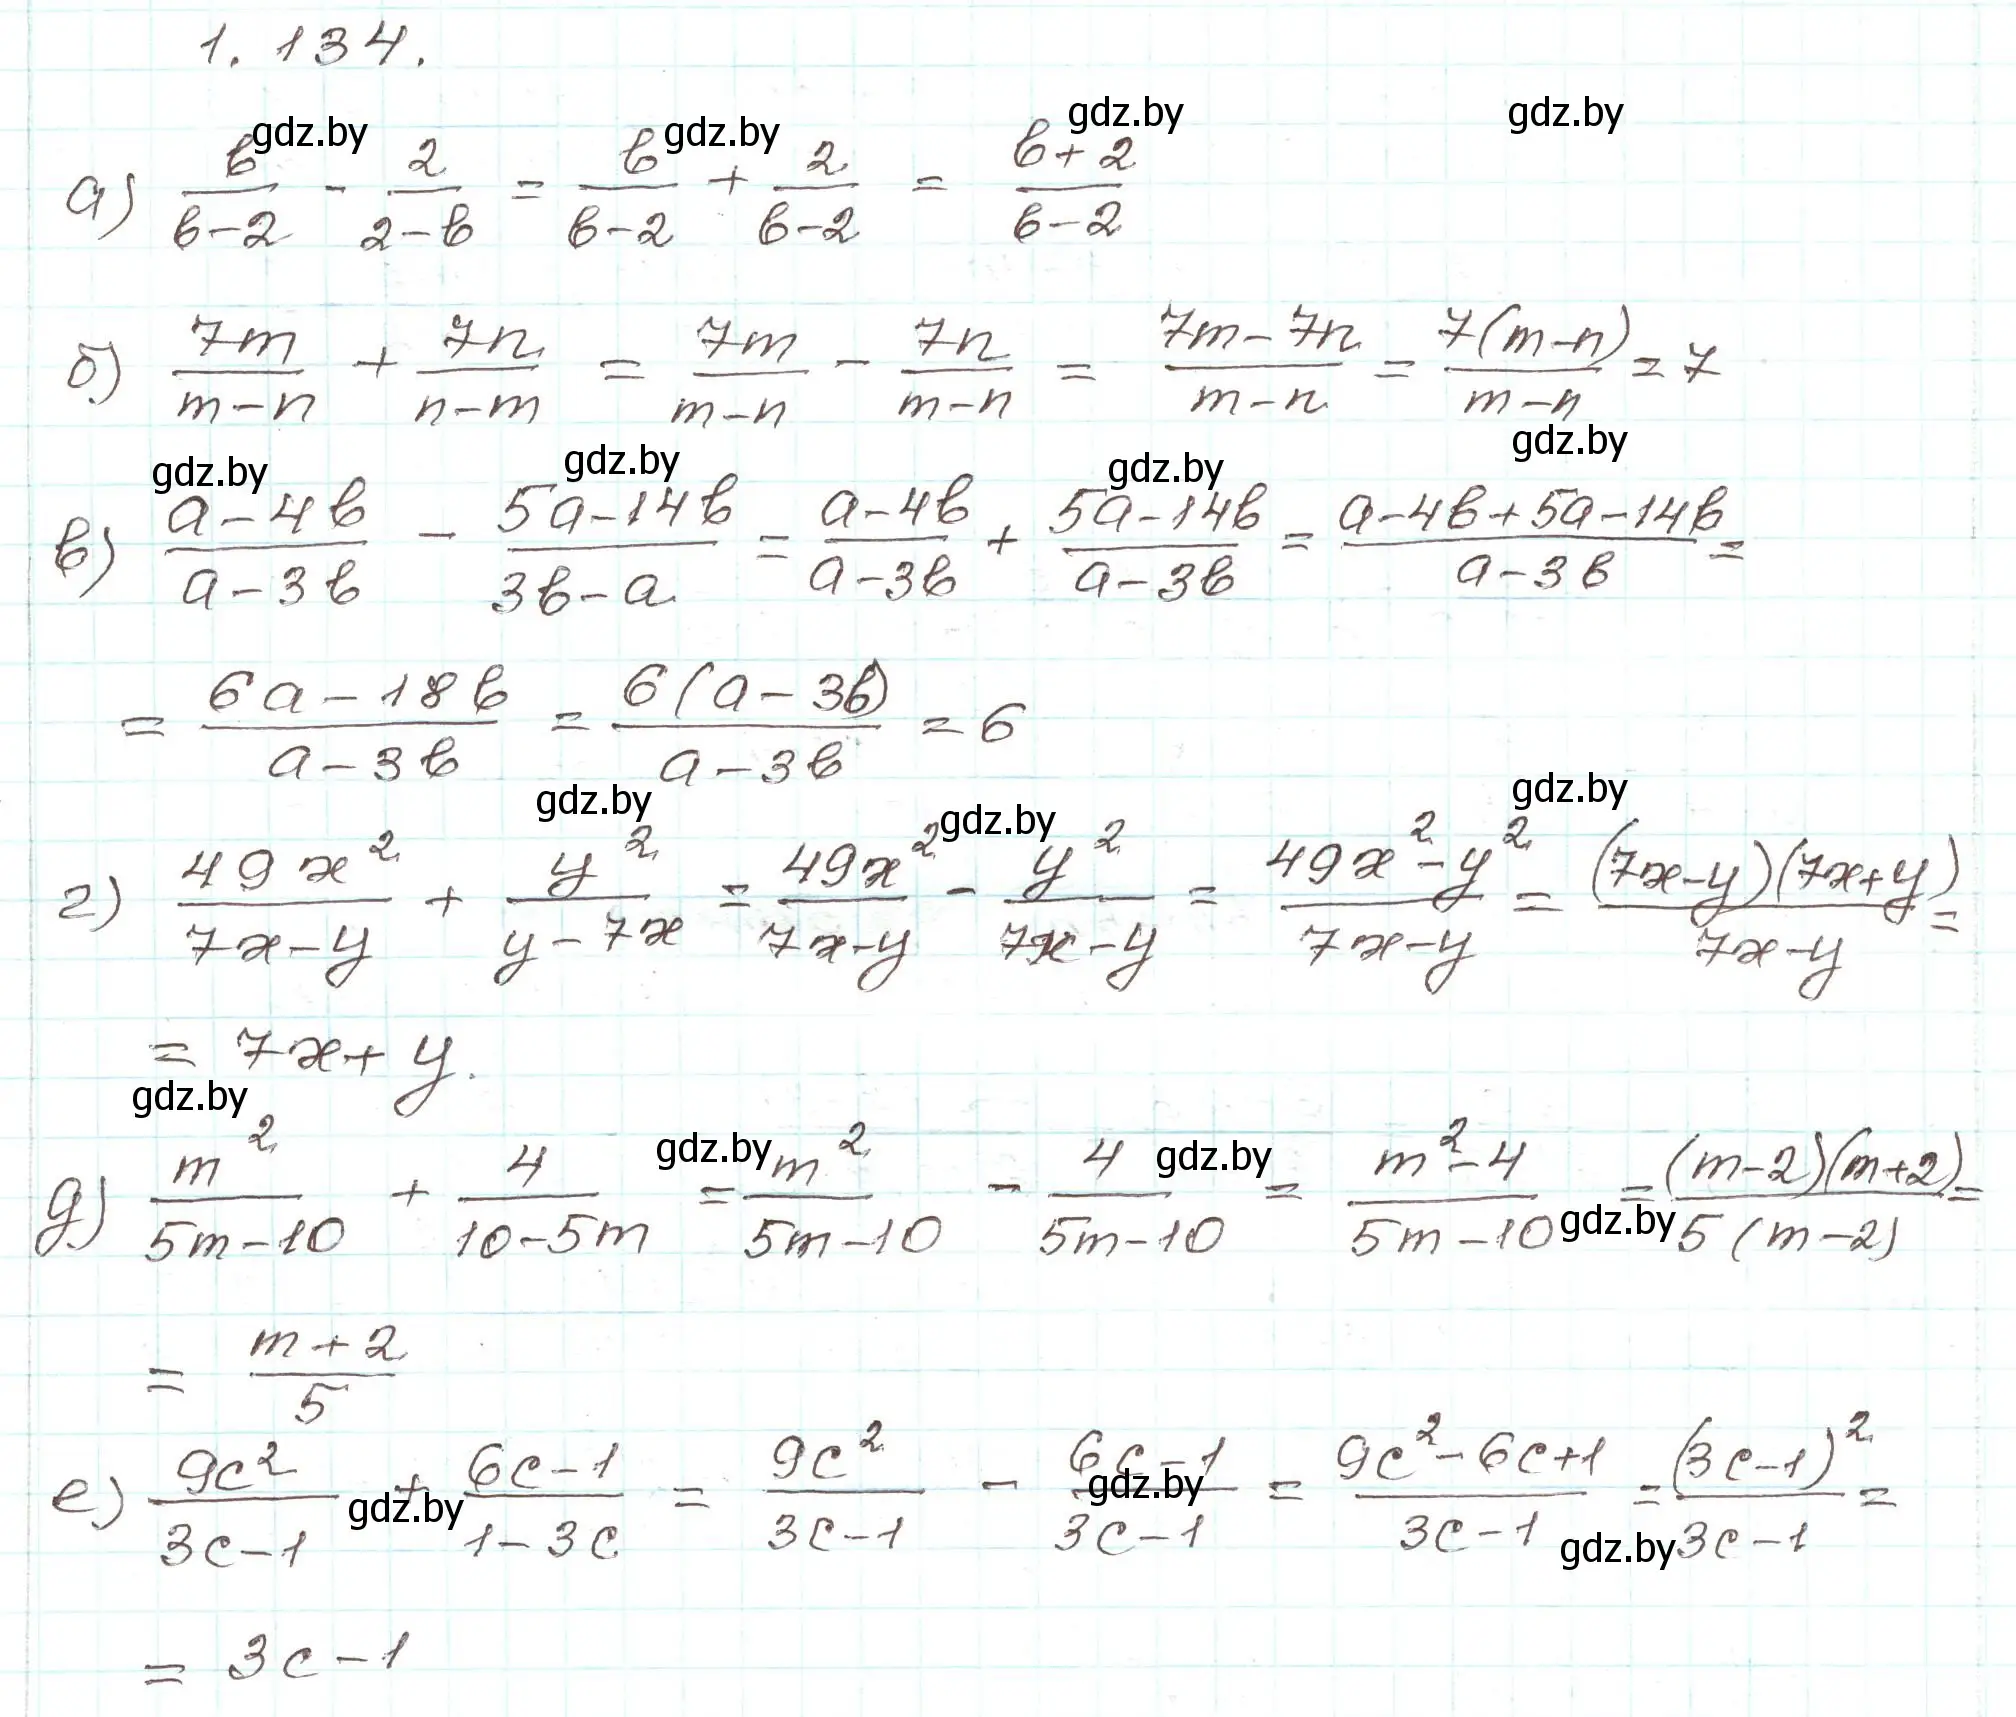 1.134.
gdz.by gdz.by gdz.by gdz.by
а) b/(b-2) - 2/(2-b) = b/(b-2) + 2/(b-2) = (b+2)/(b-2)
б) 7m/(m-n) + 7n/(n-m) = 7m/(m-n) - 7n/(m-n) = (7m-7n)/(m-n) = 7(m-n)/(m-n) = 7
gdz.by gdz.by gdz.by gdz.by
в) (a-4b)/(a-3b) - (5a-14b)/(3b-a) = (a-4b)/(a-3b) + (5a-14b)/(a-3b) = (a-4b+5a-14b)/(a-3b) =
= (6a-18b)/(a-3b) = 6(a-3b)/(a-3b) = 6
gdz.by gdz.by gdz.by
г) 49x²/(7x-y) + y²/(y-7x) = 49x²/(7x-y) - y²/(7x-y) = (49x²-y²)/(7x-y) = (7x-y)(7x+y)/(7x-y) =
= 7x+y.
gdz.by gdz.by gdz.by gdz.by
д) m²/(5m-10) + 4/(10-5m) = m²/(5m-10) - 4/(5m-10) = (m²-4)/(5m-10) = (m-2)(m+2)/5(m-2) =
= (m+2)/5
е) 9c²/(3c-1) + (6c-1)/(1-3c) = 9c²/(3c-1) - (6c-1)/(3c-1) = (9c²-6c+1)/(3c-1) = (3c-1)²/(3c-1) =
gdz.by gdz.by gdz.by
= 3c-1